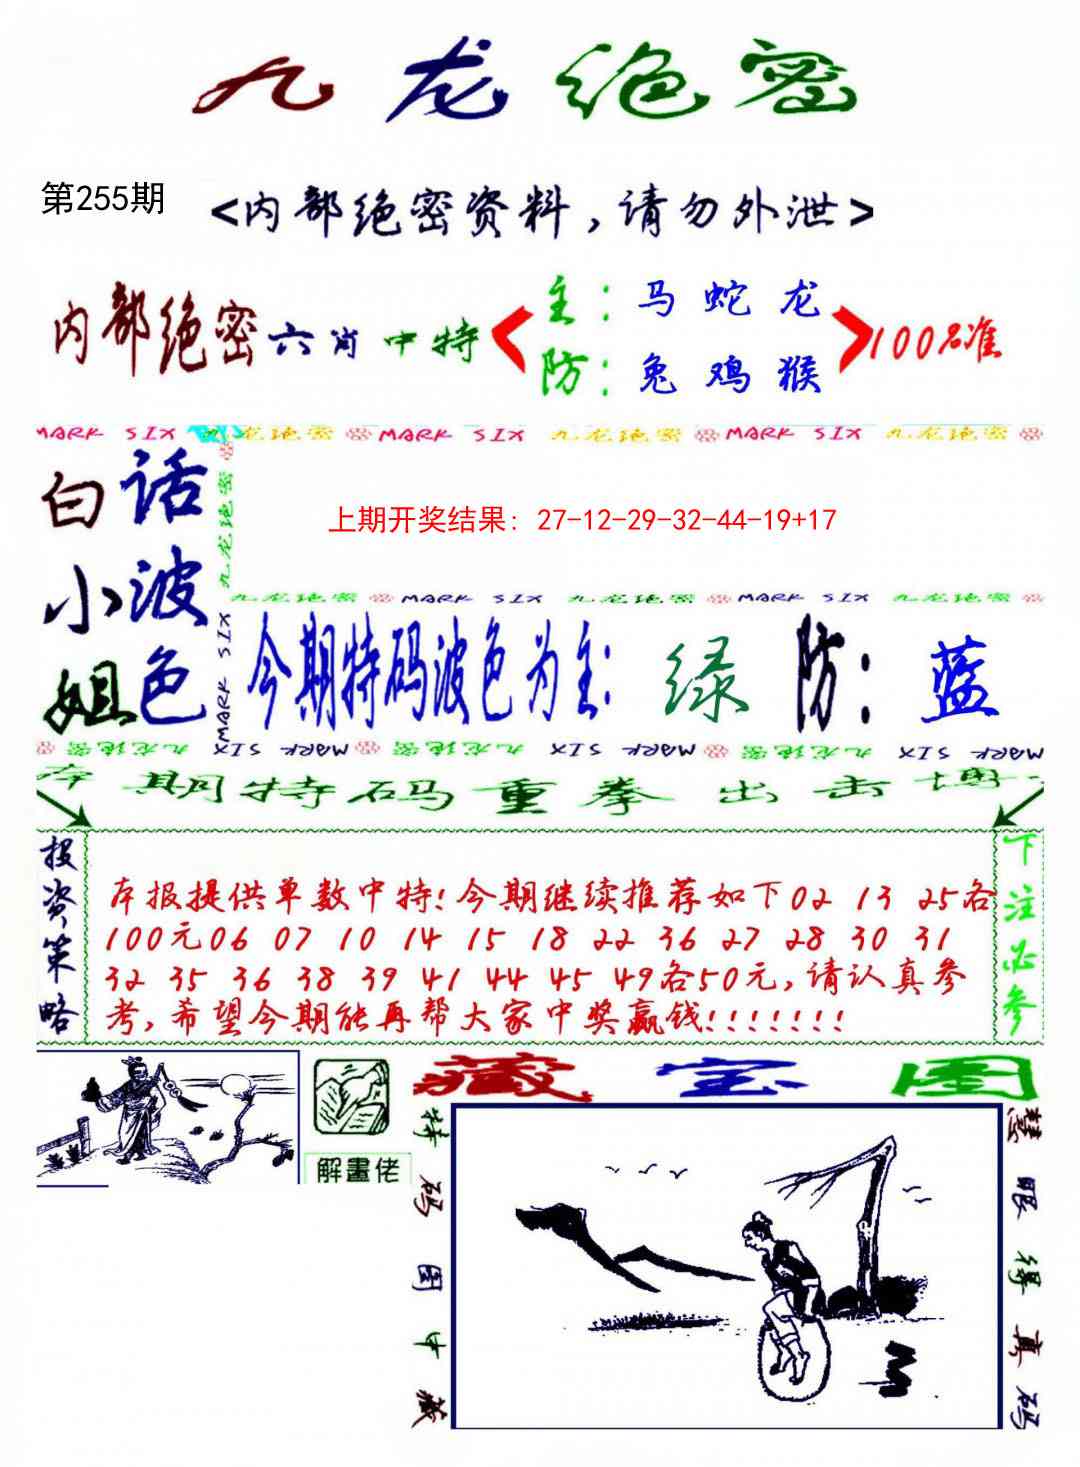 九龙绝密
第255期
<内部绝密资料，请勿外泄>
内部绝密六肖中特
主：马 蛇 龙
防：兔 鸡 猴
100%准
MARK SIX 九龙绝密 MARK SIX 九龙绝密 MARK SIX 九龙绝密
白小姐
话波色
九龙绝密
MARK SIX
上期开奖结果：27-12-29-32-44-19+17
九龙绝密 MARK SIX 九龙绝密 MARK SIX 九龙绝密
今期特码波色为主：绿 防：蓝
九龙绝密 MARK SIX 九龙绝密 MARK SIX 九龙绝密 MARK SIX
本期特码重拳出击博
投资策略
本报提供单数中特!今期继续推荐如下02 13 25各
100元06 07 10 14 15 18 22 36 27 28 30 31
32 35 36 38 39 41 44 45 49各50元,请认真参
考,希望今期能再帮大家中奖赢钱!!!!!!!
下注必参
解畫佬
藏宝图
特码图中藏
慧眼得真码